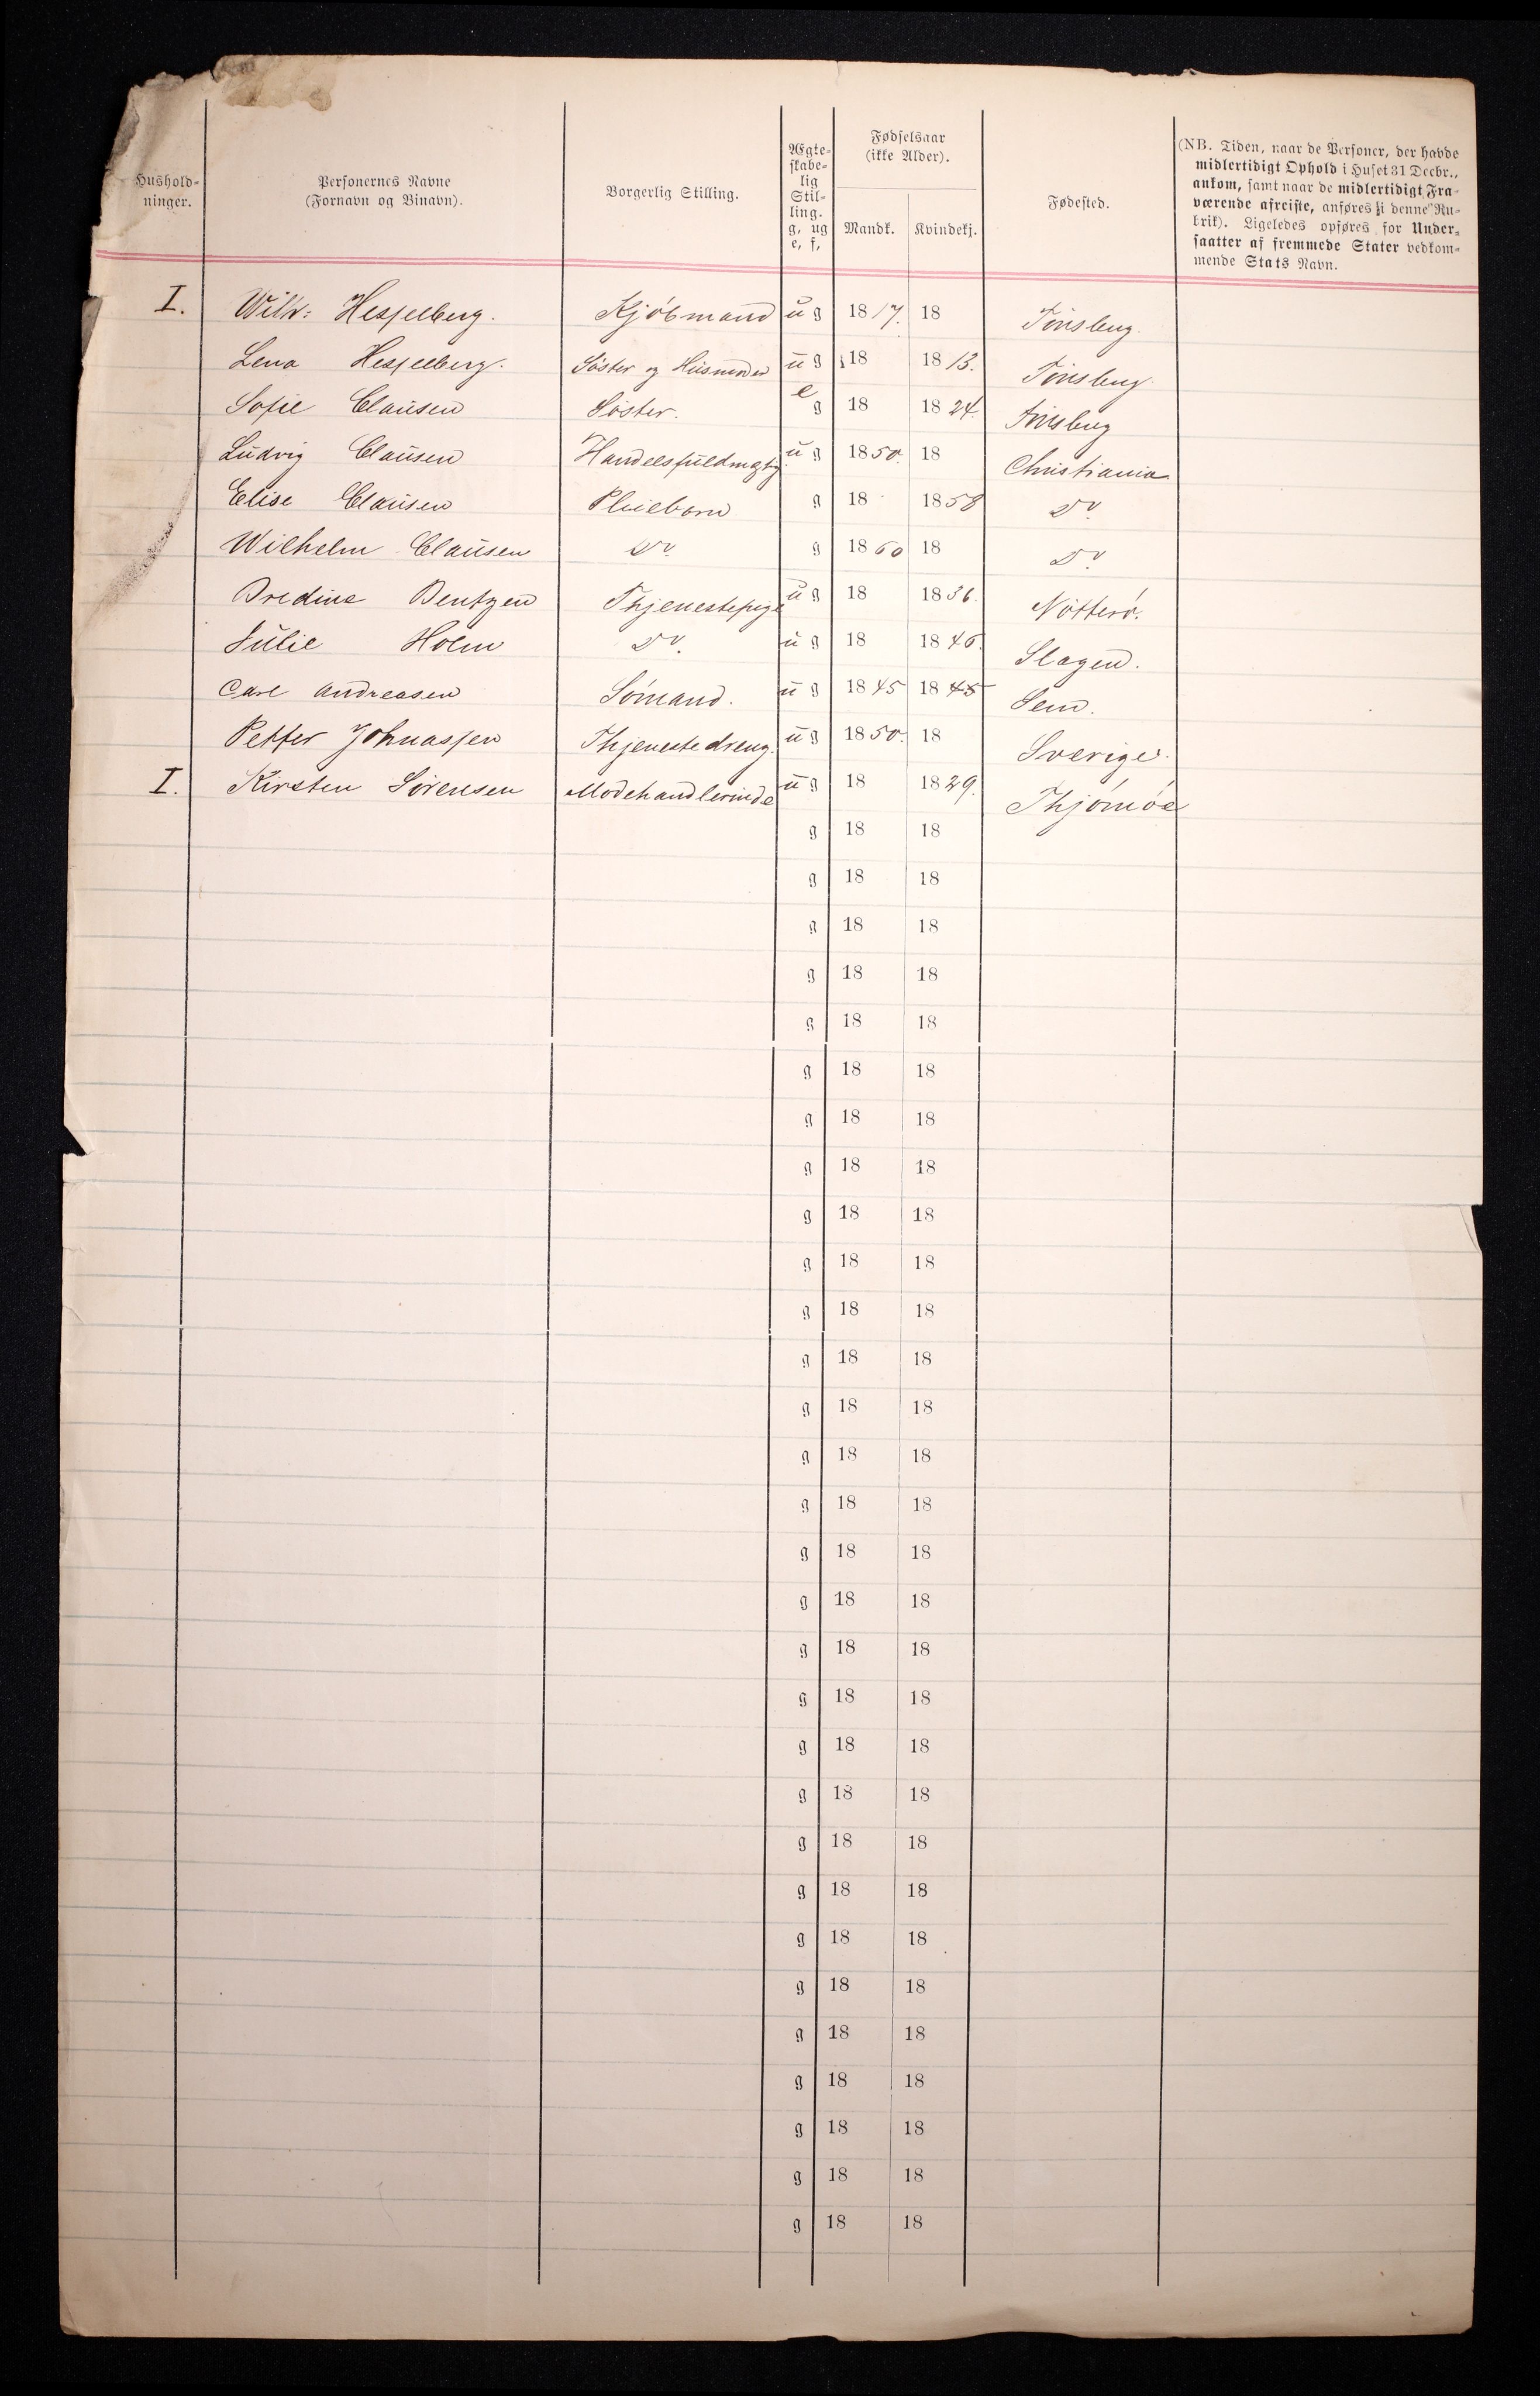 Hushold-
ninger.
Personernes Navne
(Fornavn og Binavn).
Borgerlig Stilling.
Ægte-
skabe-
lig
Stil-
ling.
g, ug
e, f,
Fødselsaar
(ikke Alder).
Mandk.
Kvindekj.
Fødested.
(NB. Tiden, naar de Personer, der havde
midlertidigt Ophold i Huset 31 Decbr.,
ankom, samt naar de midlertidigt Fra-
værende afreiste, anføres i denne Ru-
brik). Ligeledes opføres for Under-
saatter af fremmede Stater vedkom-
mende Stats Navn.
I. Wilh: Hesselberg. Kjöbmand ug 1817. 18 Tönsberg.
Lena Hesselberg. Söster og Husmoder ug 18 1813. Tönsberg.
Sofie Clausen Söster. e g 18 1824. Tönsberg
Ludvig Clausen Handelsfuldmgtg. ug 1850. 18 Christiania
Elise Clausen Pleiebarn g 18 1858 Do
Wilhelm Clausen Do g 1860 18 Do
Bredine Bentzen Thjenestepige ug 18 1836. Nötterö.
Julie Holm Do. ug 18 1846. Slagen.
Carl Andreasen Sömand. ug 1845 1845 Sem.
Petter Johnassen Thjenestedreng. ug 1850. 18 Sverige.
I. Kirsten Sörensen Modehandlerinde ug 18 1829. Thjömöe
g 18 18
g 18 18
g 18 18
g 18 18
g 18 18
g 18 18
g 18 18
g 18 18
g 18 18
g 18 18
g 18 18
g 18 18
g 18 18
g 18 18
g 18 18
g 18 18
g 18 18
g 18 18
g 18 18
g 18 18
g 18 18
g 18 18
g 18 18
g 18 18
g 18 18
g 18 18
g 18 18
g 18 18
g 18 18
g 18 18